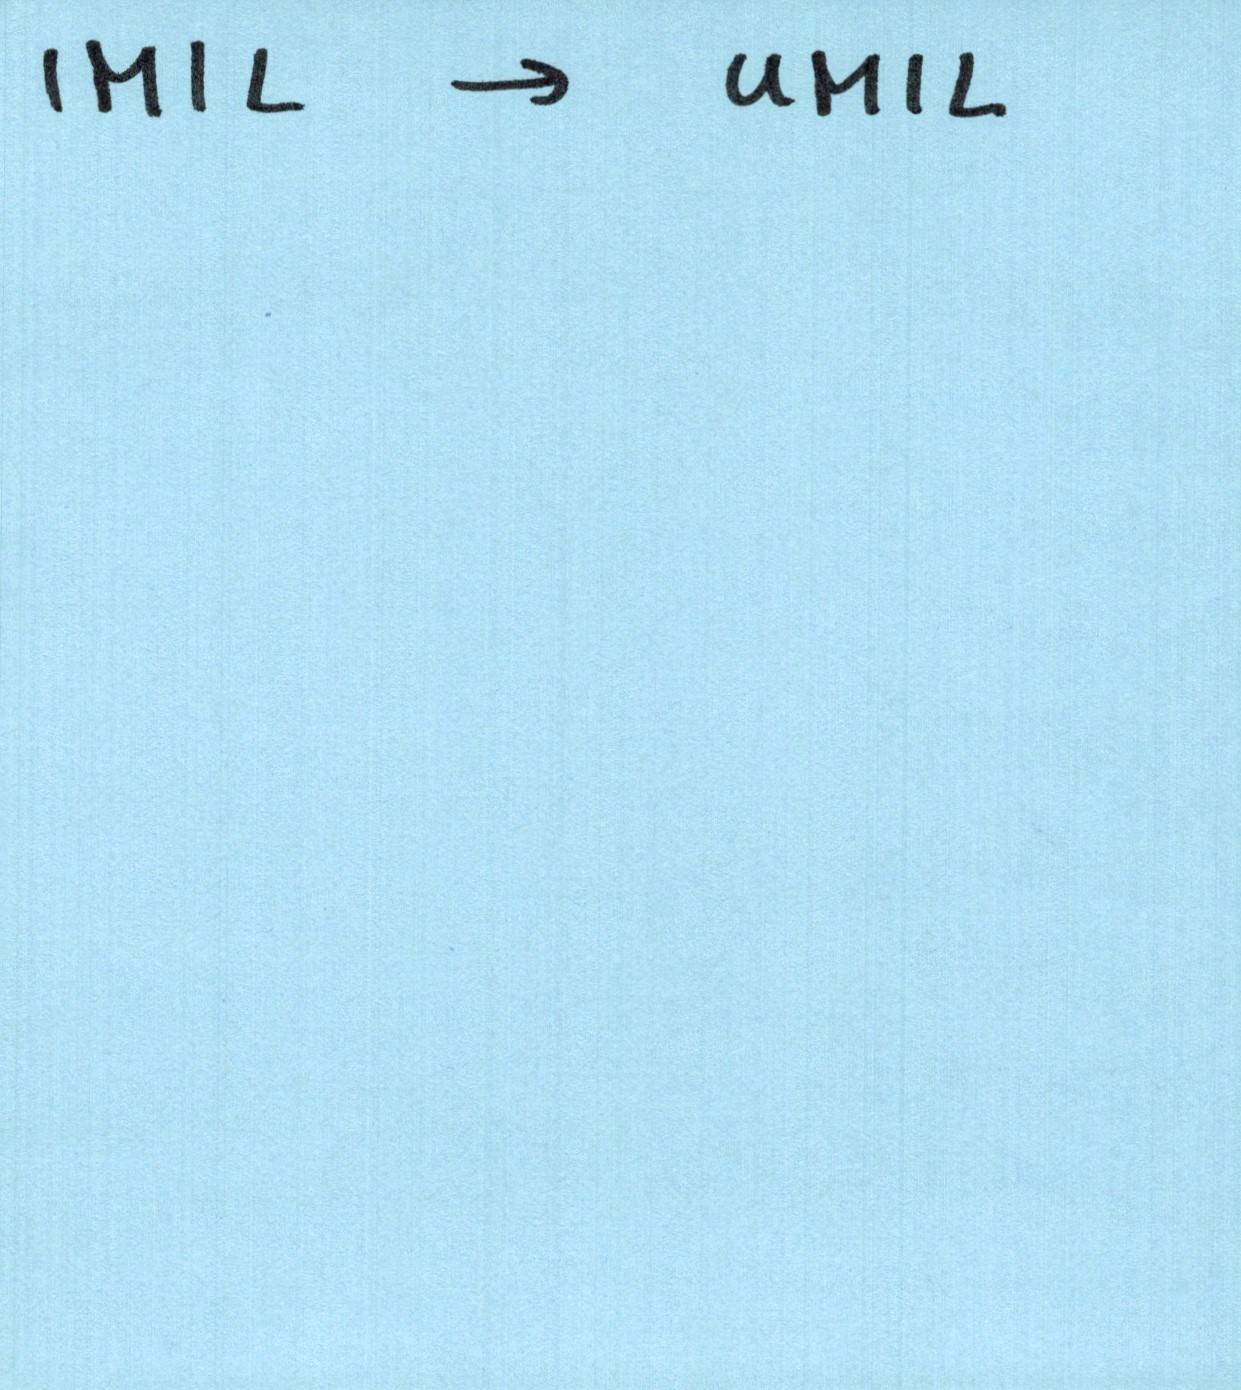 IMIL → UMIL